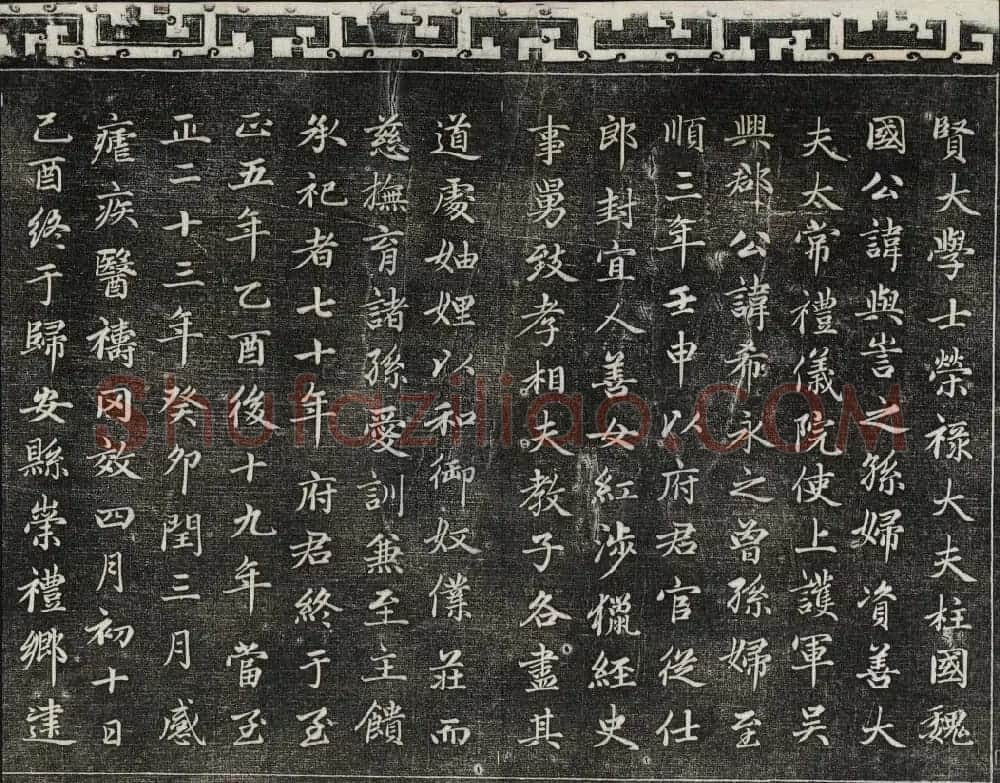 賢大學士榮祿大夫柱國魏
國公諱與訔之孫婦資善大
夫太常禮儀院使上護軍吳
興郡公諱希永之曾孫婦至
順三年壬申以府君官從仕
郎封宜人善女紅涉獵經史
事舅致孝相夫教子各盡其
道處妯娌以和御奴僕莊而
慈撫育諸孫愛訓兼至主饋
承祀者七十年府君終于至
正五年乙酉後十九年當至
正二十三年癸卯閏三月感
瘧疾醫禱罔效四月初十日
己酉終于歸安縣崇禮鄉
Shufaziliao.COM